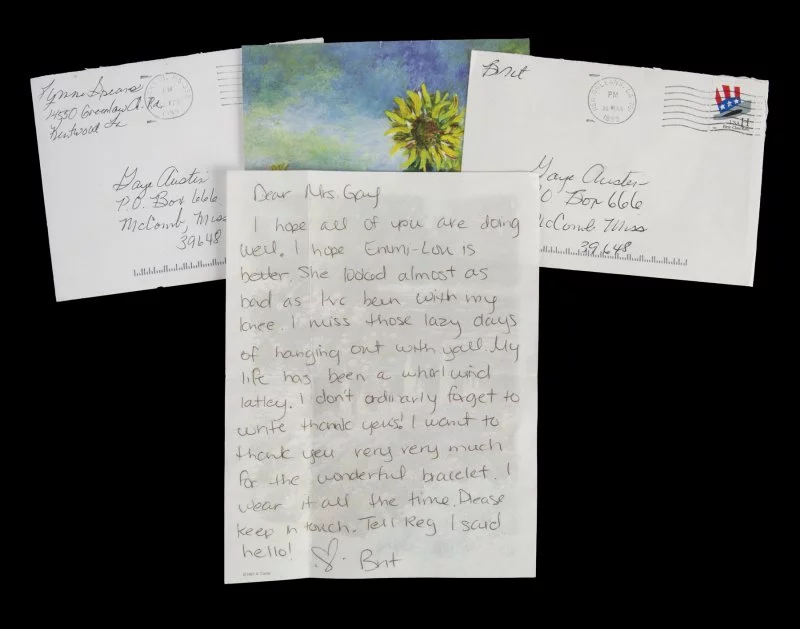 Lynne Spears
Kentwood La
Gaye Austin
P.O. Box 666
McComb, Miss
39648
Brit
PM
1999
USA H
Gaye Austin
PO Box 666
McComb Miss
39648
Dear Mrs. Gay
I hope all of you are doing
well. I hope Emmi-Lou is
better She looked almost as
bad as I've been with my
knee. I miss those lazy days
of hanging out with yall. My
life has been a whirlwind
latley. I don't ordinarly forget to
write thank yous! I want to
thank you very very much
for the wonderful bracelet. I
wear it all the time. Please
keep in touch. Tell Reg I said
hello! Brit